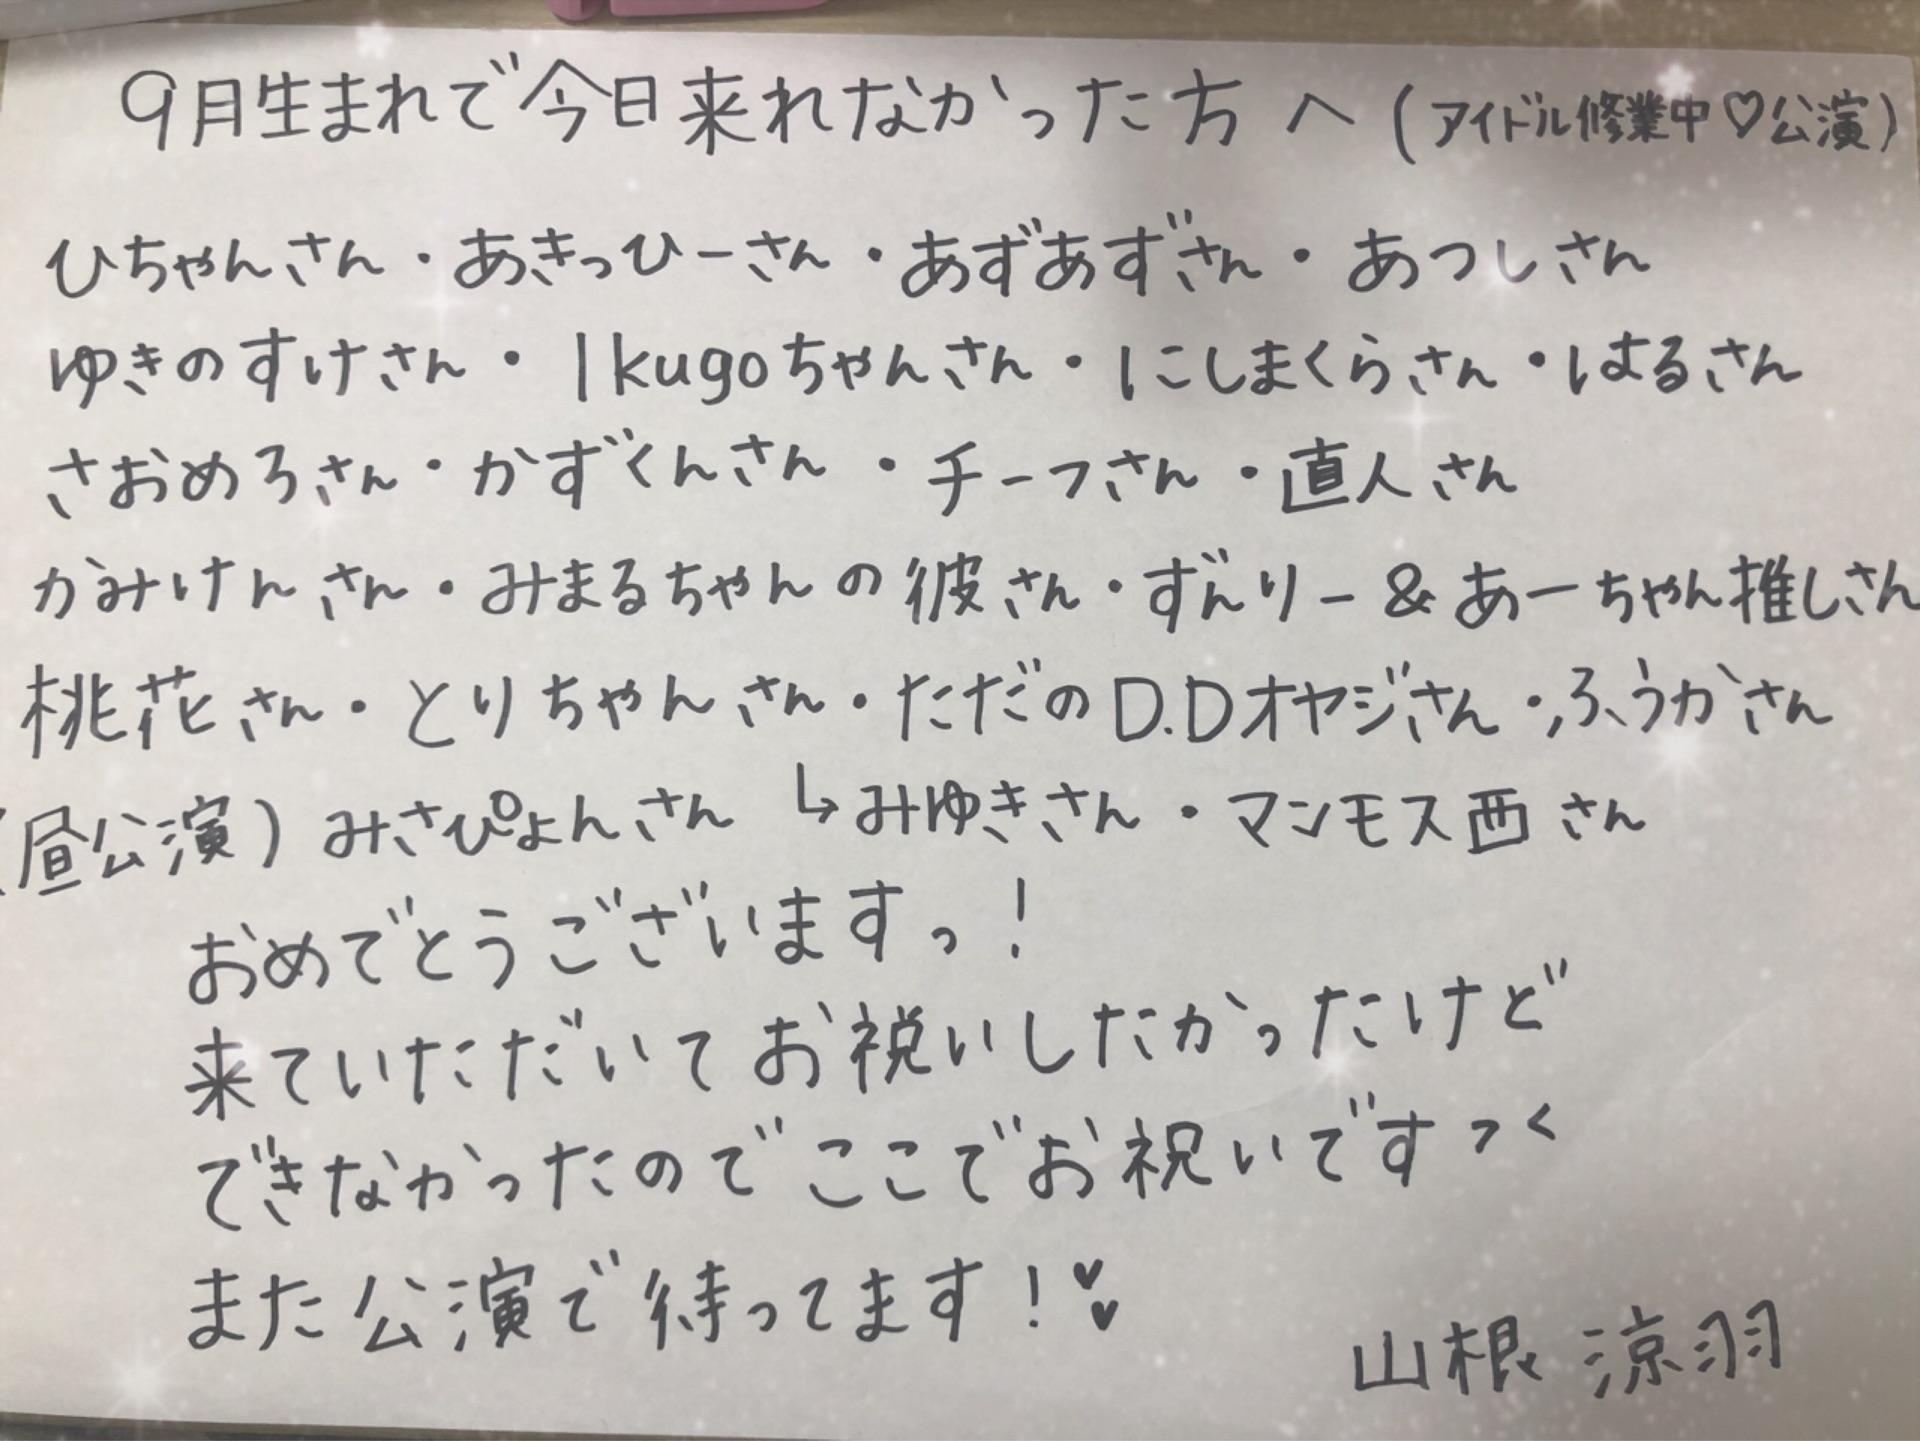 9月生まれで今日来れなかった方へ(アイドル修業中♡公演)
ひちゃんさん・あきっひーさん・あずあずさん・あつしさん
ゆきのすけさん・Ikugoちゃんさん・にしまくらさん・はるさん
さおめろさん・かずくんさん・チーフさん・直人さん
かみけんさん・みまるちゃんの彼さん・ずんりー&あーちゃん推しさん
桃花さん・とりちゃんさん・ただのD.Dオヤジさん・ふうかさん
(昼公演)みさぴょんさん ↳みゆきさん・マンモス西さん
おめでとうございますっ!
来ていただいてお祝いしたかったけど
できなかったのでここでお祝いですっく
また公演で待ってます!♥♥
山根 涼羽